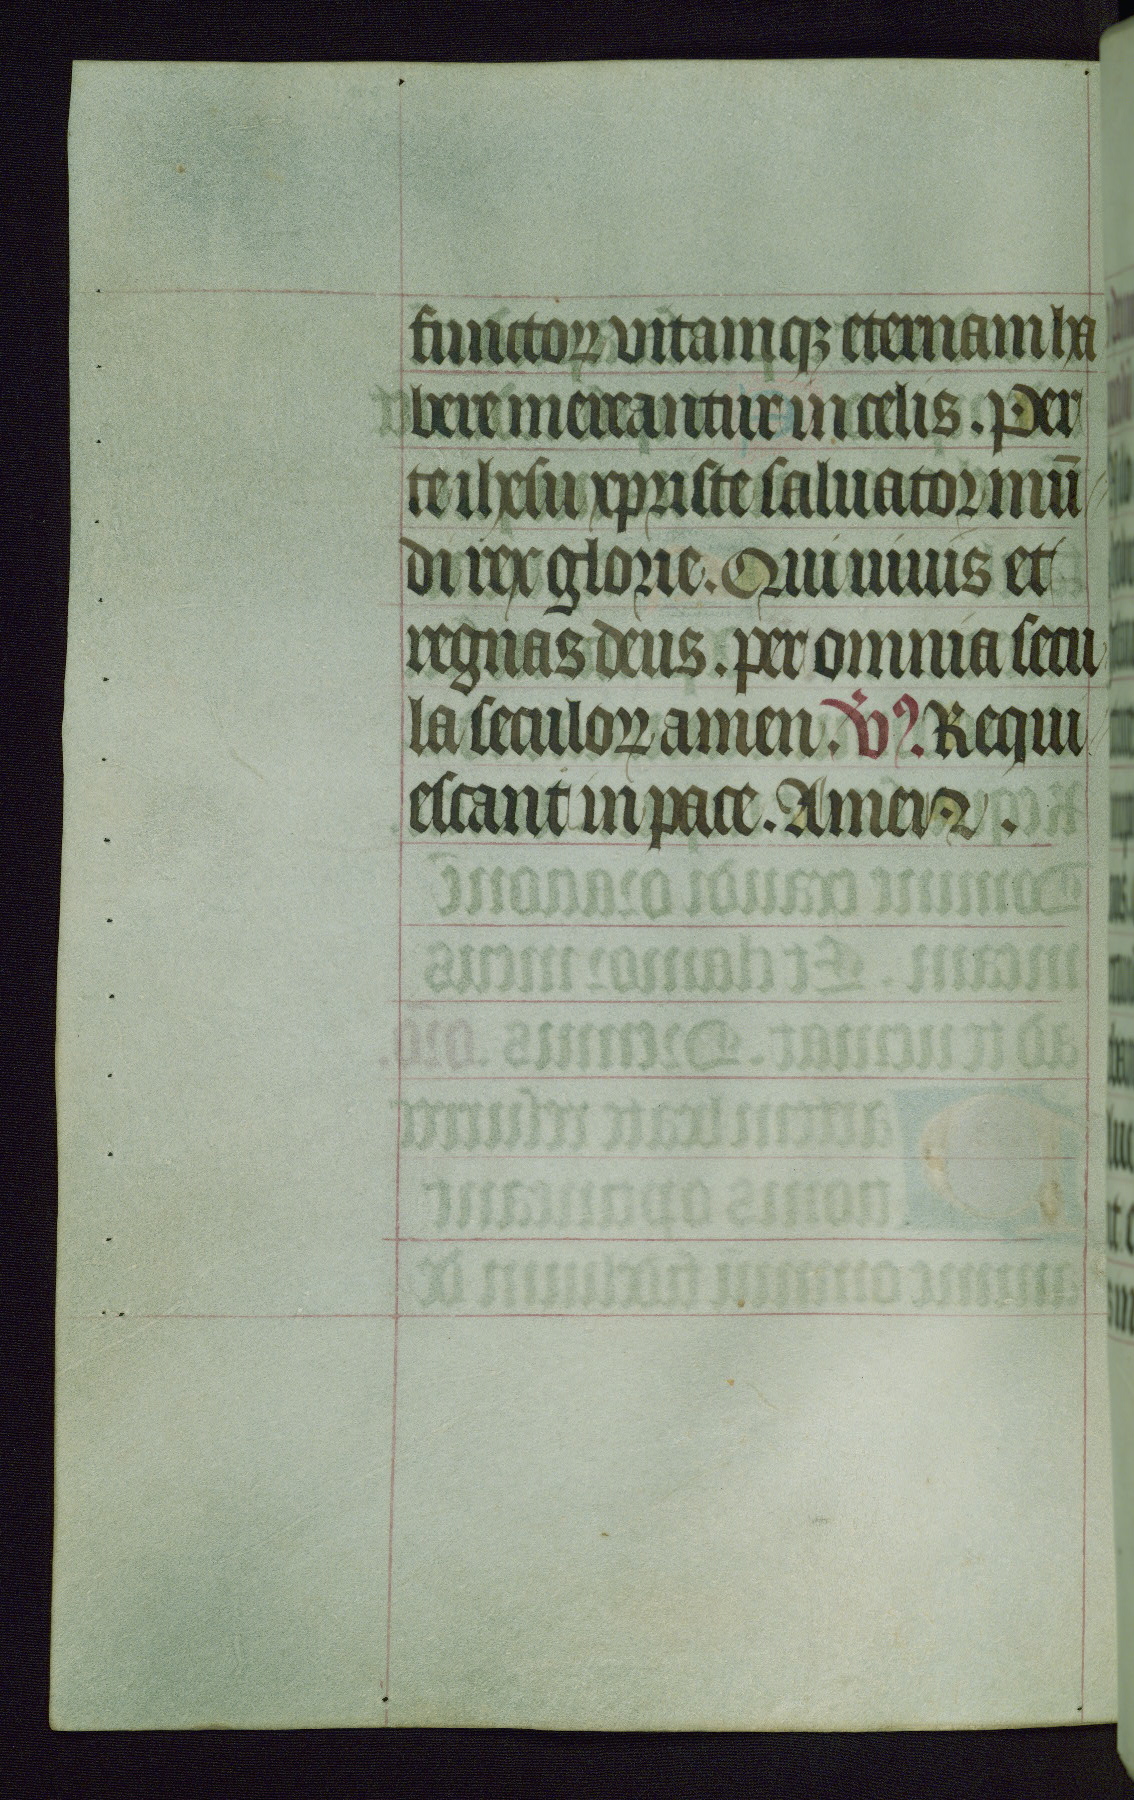 functoꝝ vitamqꝫ eternam ha
bere mereantur in celis. Per
te ihesu xpriste saluator mū
di rex glorie. Qui uiuis et
regnas deus. per omnia secu
la seculoꝝ amen. V̓ꝰ. Requi
escant in pace. Amen.